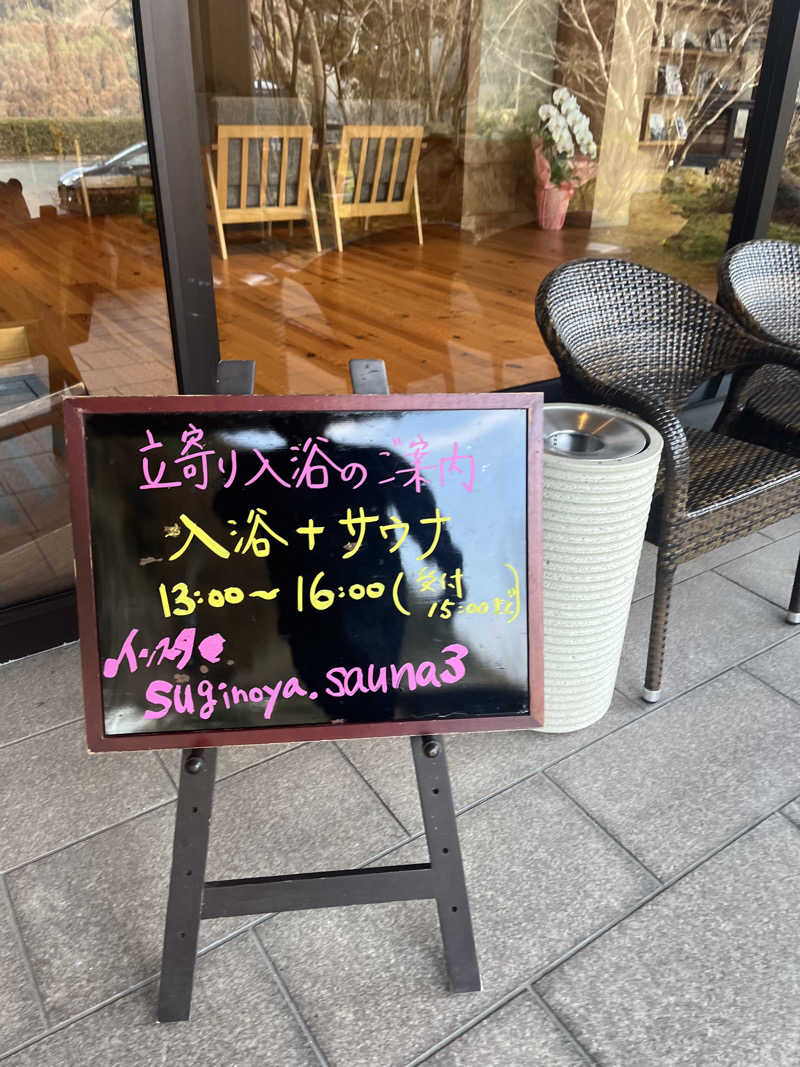 立寄り入浴のご案内
入浴+サウナ
13:00~16:00(受付
15:00まで)
インスタ
suginoya.sauna3